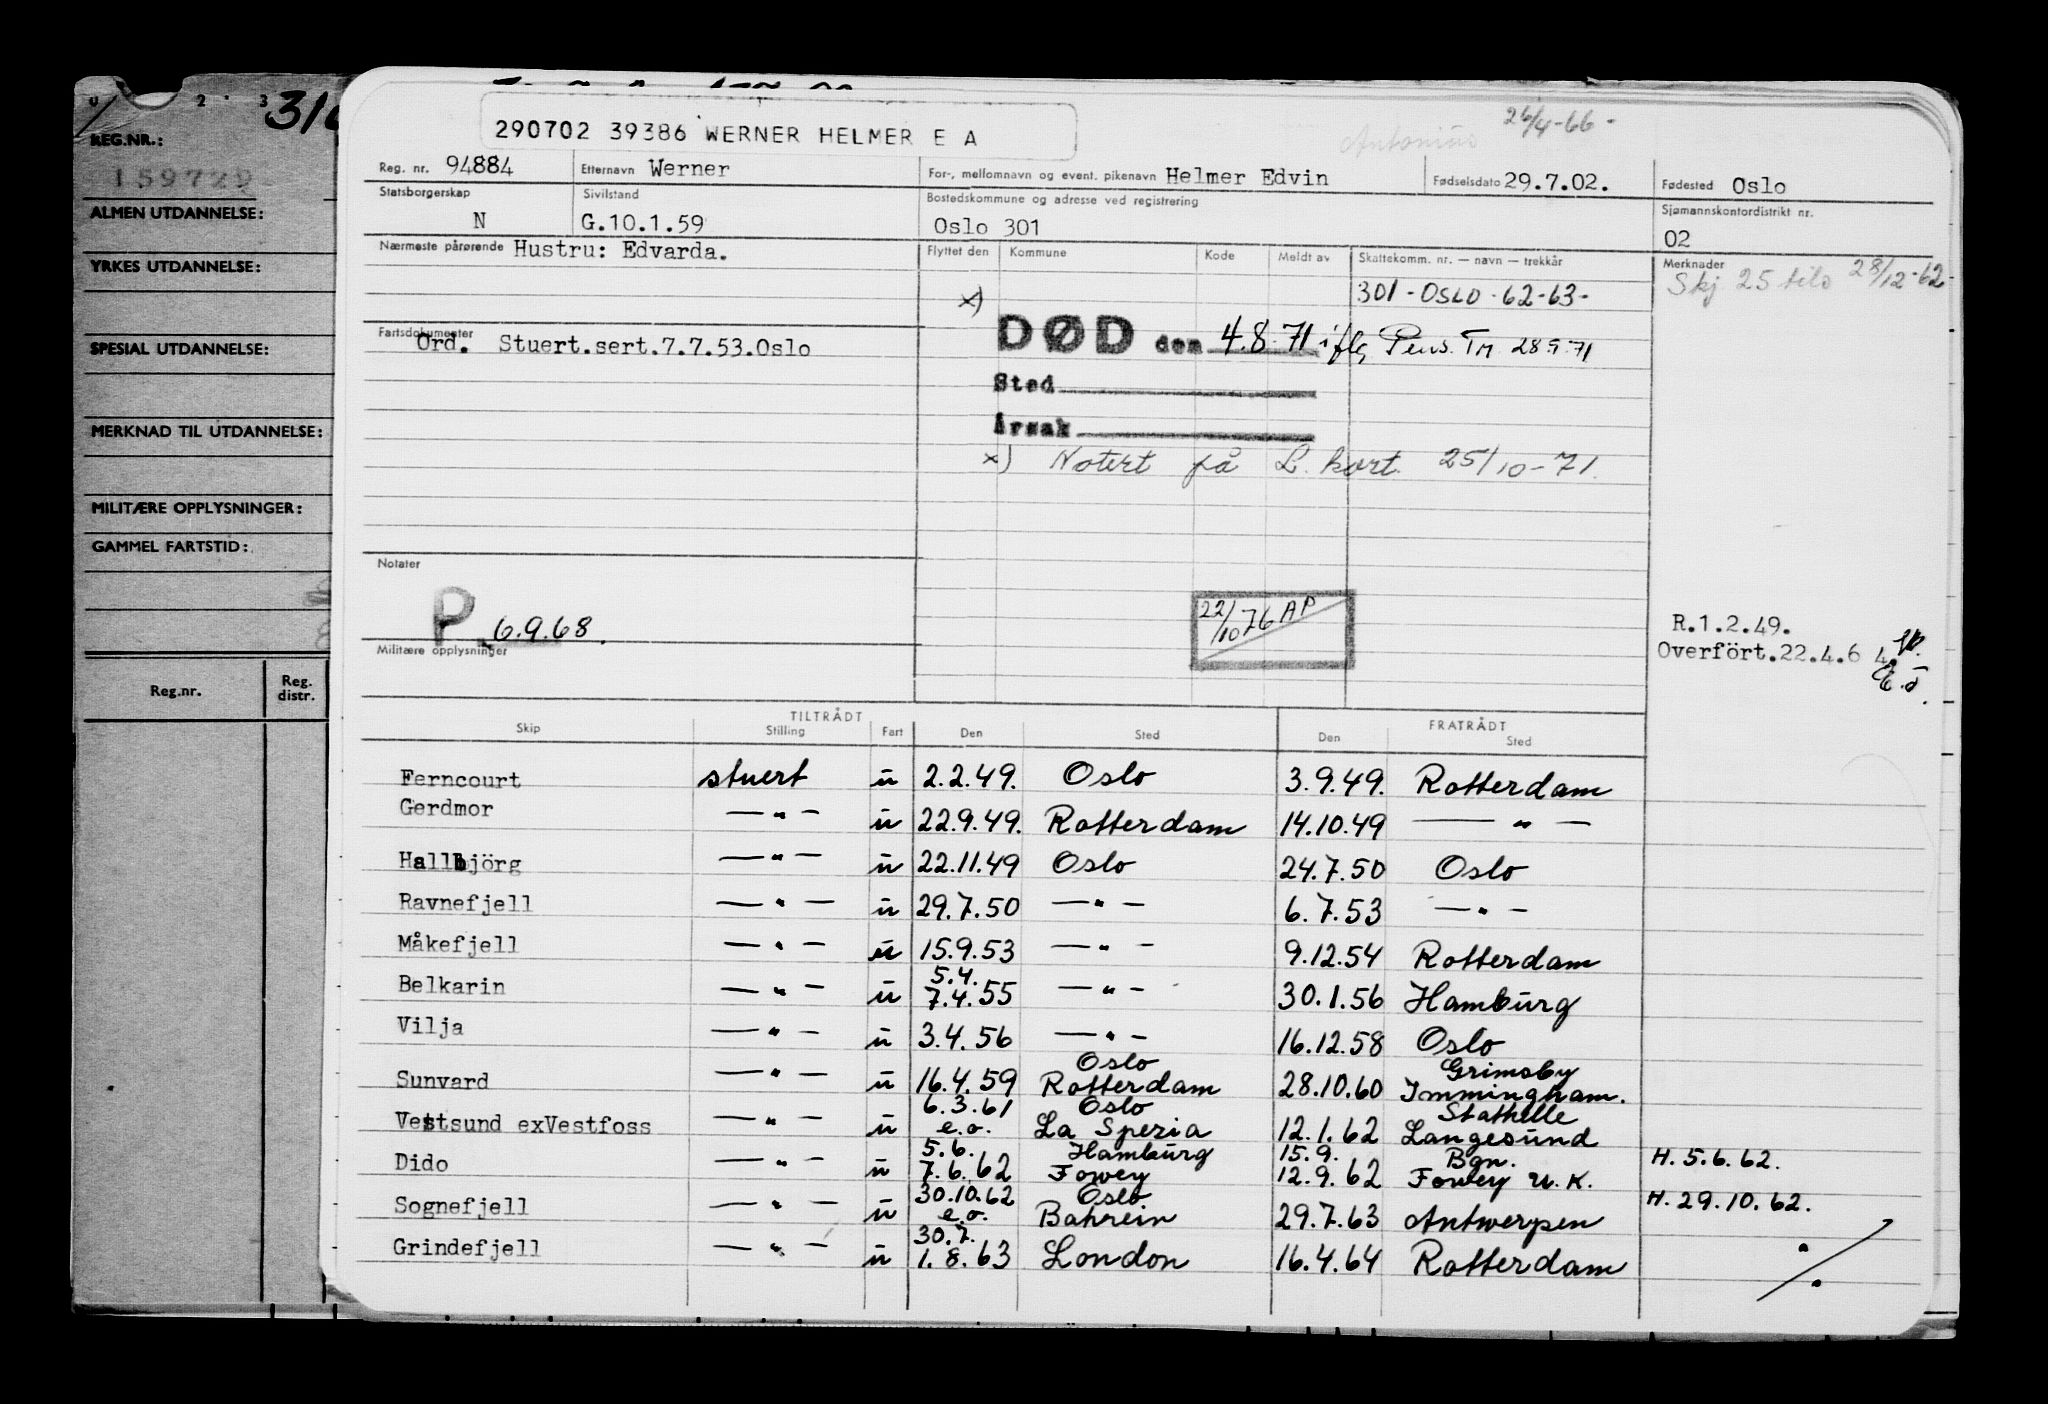 0 2 3 310
REG.NR.:
159729
ALMEN UTDANNELSE:
YRKES UTDANNELSE:
SPESIAL UTDANNELSE:
MERKNAD TIL UTDANNELSE:
MILITÆRE OPPLYSNINGER:
GAMMEL FARTSTID:
Reg.nr. Reg. distr.
290702 39386 WERNER HELMER E A
Antonius 26/4-66-
Reg. nr. 94884 Etternavn Werner For-, mellomnavn og event. pikenavn Helmer Edvin Fødselsdato 29.7.02. Fødested Oslo
Statsborgerskap N Sivilstand G.10.1.59 Bostedskommune og adresse ved registrering Oslo 301 Sjømannskontordistrikt nr. 02
Nærmeste pårørende Hustru: Edvarda. Flyttet den Kommune Kode Meldt av Skattekomm. nr. — navn — trekkår Merknader
Skj 25 tilo 28/12-62
x) 301-OSLO-62-63-
Fartsdokumenter Ord. Stuert.sert.7.7.53.Oslo
DØD den 4.8.71 iflg Pens. Tr. 28.9.71
Sted
Årsak
x) Notert på L. kort. 25/10-71.
Notater
P 6.9.68.
22/10 76 AP
R.1.2.49.
Overfört.22.4.6 4.
Militære opplysninger
TILTRÅDT FRATRÅDT
Skip Stilling Fart Den Sted Den Sted
Ferncourt stuert u 2.2.49. Oslo 3.9.49. Rotterdam
Gerdmor —"— u 22.9.49. Rotterdam 14.10.49 —"—
Hallbjörg —"— u 22.11.49 Oslo 24.7.50 Oslo
Ravnefjell —"— u 29.7.50 —"— 6.7.53 —"—
Måkefjell —"— u 15.9.53 —"— 9.12.54 Rotterdam
Belkarin —"— u 5.4. 7.4.55 —"— 30.1.56 Hamburg
Vilja —"— u 3.4.56 —"— 16.12.58 Oslo
Sunvard —"— u 16.4.59 Oslo Rotterdam 28.10.60 Grimsby Immingham.
Vestsund exVestfoss —"— u 6.3.61 e.o. Oslo La Spezia 12.1.62 Stathelle Langesund
Dido —"— u 5.6. 7.6.62 Hamburg Fowey 15.9. 12.9.62 Bgn. Fowey U.K. H.5.6.62.
Sognefjell —"— u 30.10.62 e.o. Oslo Bahrein 29.7.63 Antwerpen H.29.10.62.
Grindefjell —"— u 30.7. 1.8.63 London 16.4.64 Rotterdam